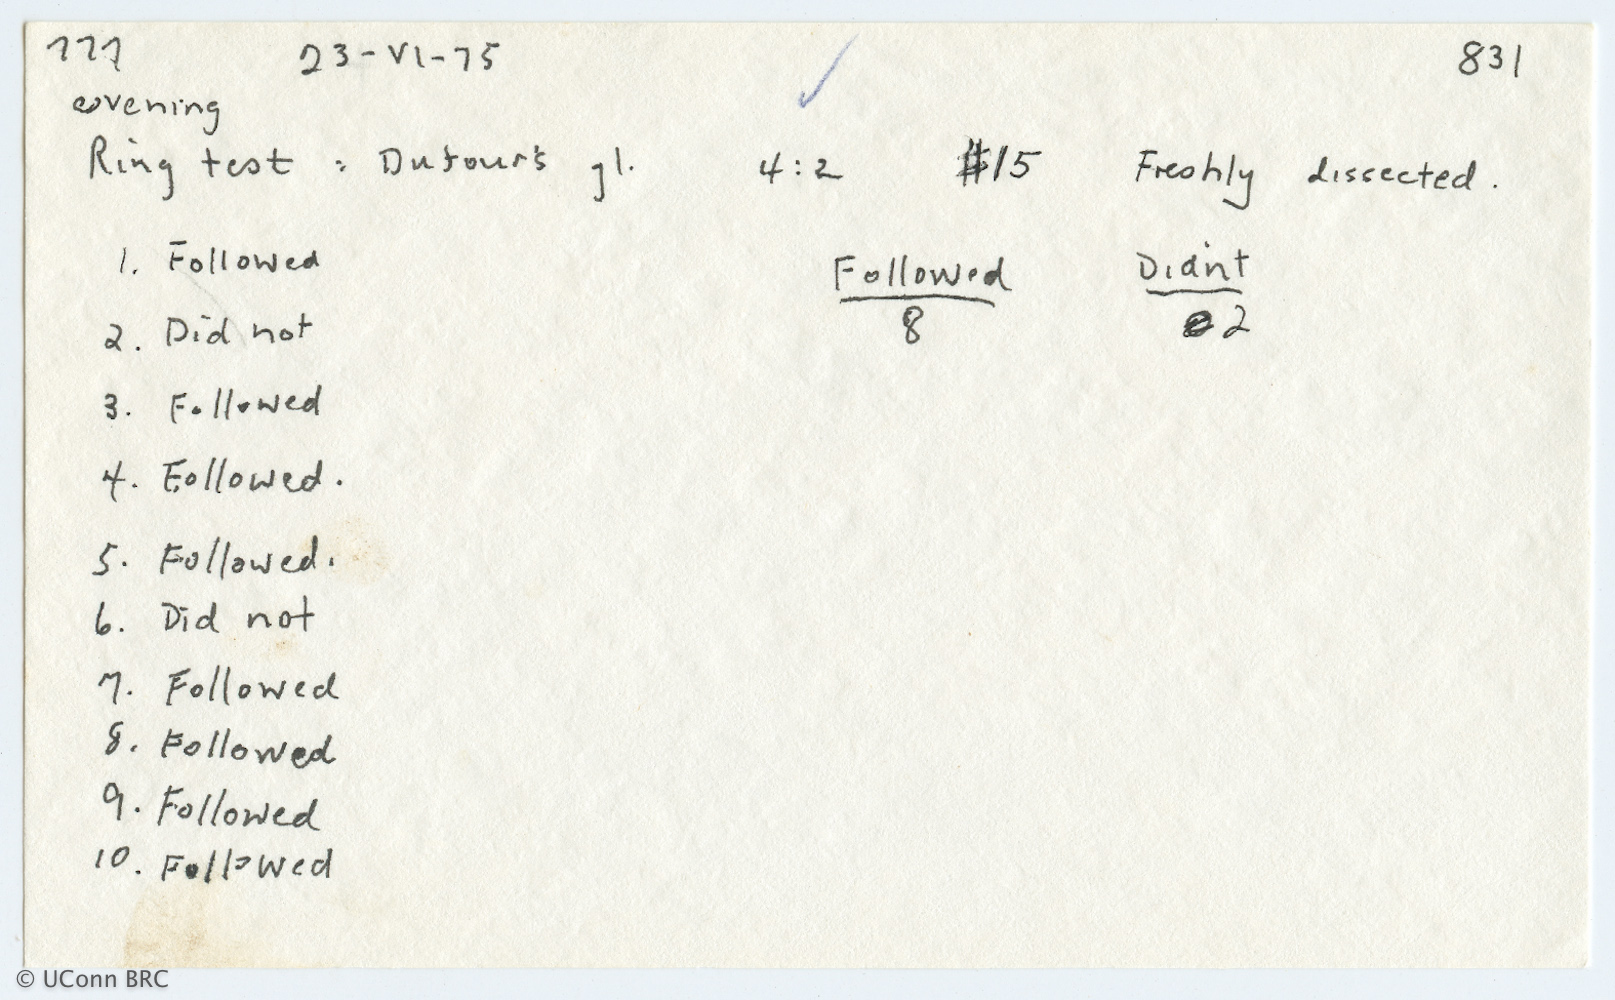 777 23-VI-75 831
evening
Ring test : Dufour's gl. 4:2 #15 Freshly dissected.
1. Followed
2. Did not
3. Followed
4. Followed.
5. Followed.
6. Did not
7. Followed
8. Followed
9. Followed
10. Followed
Followed Didn't
8 2
© UConn BRC